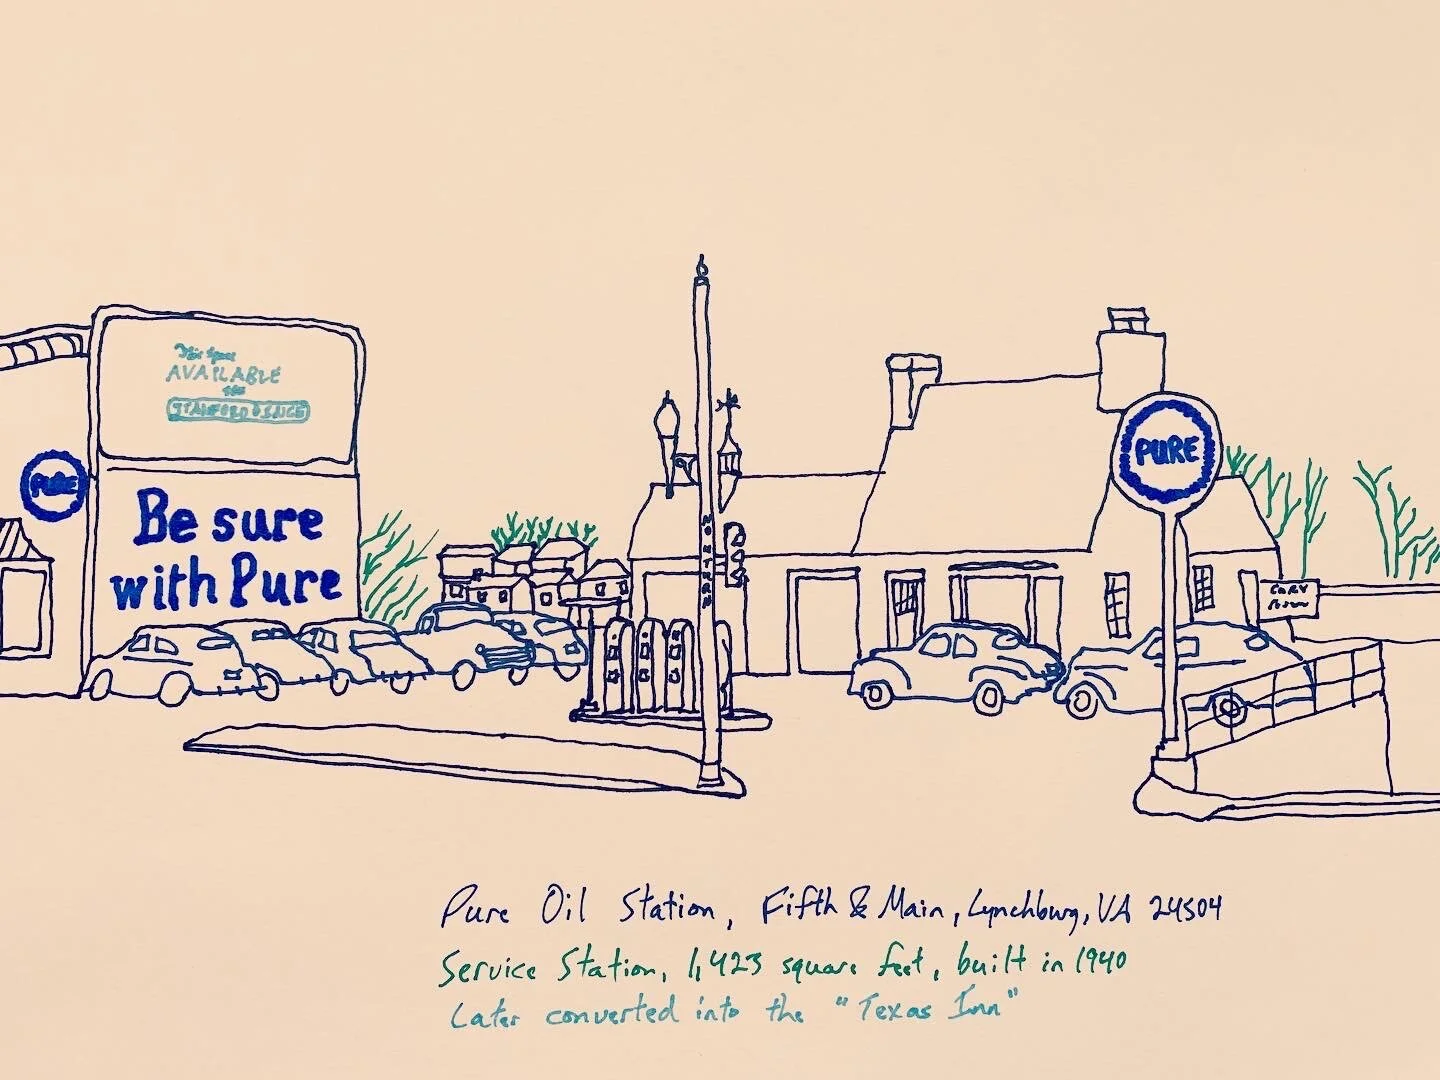 This Space
AVAILABLE
PURE
Be sure
with Pure
PURE
Pure Oil Station, Fifth & Main, Lynchburg, VA 24504
Service Station, 1,423 square feet, built in 1940
Later converted into the "Texas Inn"